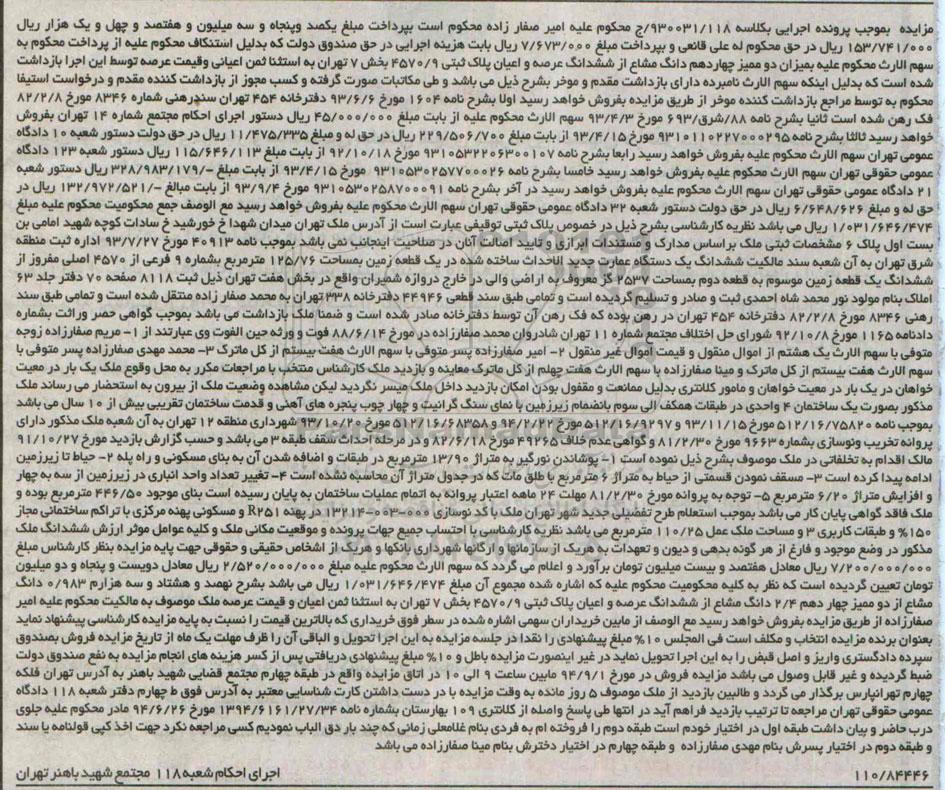 مزایده بموجب پرونده اجرایی بکلاسه ۹۳۰۰۳۱/۱۱۸/ج محکوم علیه امیر صفار زاده محکوم است بپرداخت مبلغ یکصد وپنجاه و سه میلیون و هفتصد و چهل و یک هزار ریال
۱۵۳/۷۴۱/۰۰۰ ریال در حق محکوم له علی قانعی و بپرداخت مبلغ ۷/۶۷۳/۰۰۰ ریال بابت هزینه اجرایی در حق صندوق دولت که بدلیل استنکاف محکوم علیه از پرداخت محکوم به
سهم الارث محکوم علیه بمیزان دو ممیز چهاردهم دانگ مشاع از ششدانگ عرصه و اعیان پلاک ثبتی ۴۵۷۰/۹ بخش ۷ تهران به استثنا ثمن اعیانی وقیمت عرصه توسط این اجرا بازداشت
شده است که بدلیل اینکه سهم الارث نامبرده دارای بازداشت مقدم و موخر بشرح ذیل می باشد و طی مکاتبات صورت گرفته و کسب مجوز از بازداشت کننده مقدم و درخواست استیفا
محکوم به توسط مراجع بازداشت کننده موخر از طریق مزایده بفروش خواهد رسید اولا بشرح نامه ۱۶۰۴ مورخ ۹۳/۶/۶ دفترخانه ۴۵۴ تهران سندرهنی شماره ۸۳۴۶ مورخ ۸۲/۲/۸
فک رهن شده است ثانیا بشرح نامه ۸۸/شرق/۶۹۳ مورخ ۹۳/۴/۳ سهم الارث محکوم علیه از بابت مبلغ ۴۵/۰۰۰/۰۰۰ ریال دستور اجرای احکام مجتمع شماره ۱۴ تهران بفروش
خواهد رسید ثالثا بشرح نامه ۹۳۱۰۱۱۰۲۲۷۰۰۰۲۹۵ مورخ ۹۳/۴/۱۵ از بابت مبلغ ۲۲۹/۵۰۶/۷۰۰ ریال در حق له و مبلغ ۱۱/۴۷۵/۳۳۵ ریال در حق دولت دستور شعبه ۱۰ دادگاه
عمومی تهران سهم الارث محکوم علیه بفروش خواهد رسید رابعا بشرح نامه ۹۳۱۰۵۳۲۲۰۶۳۰۰۱۰۷ مورخ ۹۲/۱۰/۱۸ از بابت مبلغ ۱۱۵/۶۴۶/۱۱۳ ریال دستور شعبه ۱۲۳ دادگاه
عمومی حقوقی تهران سهم الارث محکوم علیه بفروش خواهد رسید خامسا بشرح نامه ۹۳۱۰۵۳۰۲۵۷۷۰۰۰۲۶ مورخ ۹۳/۴/۱۵ از بابت مبلغ -/۳۲۸/۹۸۳/۱۷۹ ریال دستور شعبه
۲۱ دادگاه عمومی حقوقی تهران سهم الارث محکوم علیه بفروش خواهد رسید در آخر بشرح نامه ۹۳۱۰۵۳۰۲۵۸۷۰۰۰۹۱ مورخ ۹۳/۹/۴ از بابت مبالغ -/۱۳۲/۹۷۲/۵۲۱ ریال در
حق له و مبلغ ۶/۶۴۸/۶۲۶ ریال در حق دولت دستور شعبه ۳۲ دادگاه عمومی حقوقی تهران سهم الارث محکوم علیه بفروش خواهد رسید مع الوصف جمع محکومیت محکوم علیه مبلغ
۱/۰۳۱/۶۴۶/۴۷۴ ریال می باشد نظریه کارشناسی بشرح ذیل در خصوص پلاک ثبتی توقیفی عبارت است از آدرس ملک تهران میدان شهدا خ خورشید خ سادات کوچه شهید امامی بن
بست اول پلاک ۶ مشخصات ثبتی ملک براساس مدارک و مستندات ابرازی و تایید اصالت آنان در صلاحیت اینجانب نمی باشد بموجب نامه ۴۰۹۱۳ مورخ ۹۳/۷/۲۷ اداره ثبت منطقه
شرق تهران به آن شعبه سند مالکیت ششدانگ یک دستگاه عمارت جدید الاحداث ساخته شده در یک قطعه زمین بمساحت ۱۲۵/۷۶ مترمربع بشماره ۹ فرعی از ۴۵۷۰ اصلی مفروز از
ششدانگ یک قطعه زمین موسوم به قطعه دوم بمساحت ۲۵۳۷ گز معروف به اراضی والی در خارج دروازه شمیران واقع در بخش هفت تهران ذیل ثبت ۸۱۱۸ صفحه ۷۰ دفتر جلد ۶۳
املاک بنام مولود نور محمد شاه احمدی ثبت و صادر و تسلیم گردیده است و تمامی طبق سند قطعی ۴۴۹۴۶ دفترخانه ۳۳۸ تهران به محمد صفار زاده منتقل شده است و تمامی طبق سند
رهنی ۸۳۴۶ مورخ ۸۲/۲/۸ دفترخانه ۴۵۴ تهران در رهن بوده که فک رهن آن توسط دفترخانه صادر شده است و ضمنا ملک بازداشت می باشد بموجب گواهی حصر وراثت بشماره
دادنامه ۱۱۶۵ مورخ ۹۲/۱۰/۸ شورای حل اختلاف مجتمع شماره ۱۱ تهران شادروان محمد صفارزاده در مورخ ۸۸/۶/۱۴ فوت و ورثه حین الفوت وی عبارتند از ۱- مریم صفارزاده زوجه
متوفی با سهم الارث یک هشتم از اموال منقول و قیمت اموال غیر منقول ۲- امیر صفارزاده پسر متوفی با سهم الارث هفت بیستم از کل ماترک ۳- محمد مهدی صفارزاده پسر متوفی با
سهم الارث هفت بیستم از کل ماترک و مینا صفارزاده با سهم الارث هفت چهلم از کل ماترک معاینه و بازدید ملک کارشناس منتخب با مراجعات مکرر به محل وقوع ملک یک بار در معیت
خواهان در یک بار در معیت خواهان و مامور کلانتری بدلیل ممانعت و مقفول بودن امکان بازدید داخل ملک میسر نگردید لیکن مشاهده وضعیت ملک از بیرون به استحضار می رساند ملک
مذکور بصورت یک ساختمان ۴ واحدی در طبقات همکف الی سوم بانضمام زیرزمین با نمای سنگ گرانیت و چهار چوب پنجره های آهنی و قدمت ساختمان تقریبی بیش از ۱۰ سال می باشد
بموجب نامه ۵۱۲/۱۶/۷۵۸۲۰ مورخ ۹۳/۱۱/۱۵ و ۵۱۲/۱۶/۹۲۹۷ مورخ ۹۴/۲/۲۲ و ۵۱۲/۱۶/۶۸۳۵۸ مورخ ۹۳/۱۰/۲۰ شهرداری منطقه ۱۲ تهران به آن شعبه ملک مذکور دارای
پروانه تخریب ونوسازی بشماره ۹۶۶۳ مورخ ۸۱/۲/۳۰ و گواهی عدم خلاف ۴۹۲۶۵ مورخ ۸۲/۶/۱۸ و در مرحله احداث سقف طبقه ۳ می باشد و حسب گزارش بازدید مورخ ۹۱/۱۰/۲۷
مالک اقدام به تخلفاتی در ملک موصوف بشرح ذیل نموده است ۱- پوشاندن نورگیر به متراژ ۱۳/۹۰ مترمربع در طبقات و اضافه شدن آن به بنای مسکونی و راه پله ۲- حیاط تا زیرزمین
ادامه پیدا کرده است ۳- مسقف نمودن قسمتی از حیاط به متراژ ۶ مترمربع با طلق مات که در جدول متراژ آن محاسبه نشده است ۴- تغییر تعداد واحد انباری در زیرزمین از سه به چهار
و افزایش متراژ ۶/۲۰ مترمربع ۵- توجه به پروانه مورخ ۸۱/۲/۳۰ مهلت ۲۴ ماهه اعتبار پروانه به اتمام عملیات ساختمان به پایان رسیده است بنای موجود ۴۴۶/۵۰ مترمربع بوده و
ملک فاقد گواهی پایان کار می باشد بموجب استعلام طرح تفضیلی جدید شهر تهران ملک با کد نوسازی ۰۰۶-۰۰۳-۱۳۲۱۴ در پهنه R۲۵۱ و مسکونی پهنه مرکزی با تراکم ساختمانی مجاز
۱۵۰% و طبقات کاربری ۳ و مساحت ملک عمل ۱۱۰/۲۵ مترمربع می باشد نظریه کارشناسی با احتساب جمیع جهات پرونده و موقعیت مکانی ملک و کلیه عوامل موثر ارزش ششدانگ ملک
مذکور در وضع موجود و فارغ از هر گونه بدهی و دیون و تعهدات به هریک از سازمانها و ارگانها شهرداری بانکها و هریک از اشخاص حقیقی و حقوقی جهت پایه مزایده بنظر کارشناس مبلغ
۷/۲۰۰/۰۰۰/۰۰۰ ریال معادل هفتصد و بیست میلیون تومان برآورد و اعلام می گردد که سهم الارث محکوم علیه مبلغ ۲/۵۲۰/۰۰۰/۰۰۰ ریال معادل دویست و پنجاه و دو میلیون
تومان تعیین گردیده است که نظر به کلیه محکومیت محکوم علیه که اشاره شده مجموع آن مبلغ ۱/۰۳۱/۶۴۶/۴۷۴ ریال می باشد بشرح نهصد و هشتاد و سه هزارم ۰/۹۸۳ دانگ
مشاع از دو ممیز چهار دهم ۲/۴ دانگ مشاع از ششدانگ عرصه و اعیان پلاک ثبتی ۴۵۷۰/۹ بخش ۷ تهران به استثنا ثمن اعیان و قیمت عرصه ملک موصوف به مالکیت محکوم علیه امیر
صفارزاده از طریق مزایده بفروش خواهد رسید مع الوصف از مابین خریداران سهمی اشاره شده در سطر فوق خریداری که بالاترین قیمت را نسبت به پایه مزایده کارشناسی پیشنهاد نماید
بعنوان برنده مزایده انتخاب و مکلف است فی المجلس ۱۰% مبلغ پیشنهادی را نقدا در جلسه مزایده به این اجرا تحویل و الباقی آن را ظرف مهلت یک ماه از تاریخ مزایده فروش بصندوق
سپرده دادگستری واریز و اصل قبض را به این اجرا تحویل نماید در غیر اینصورت مزایده باطل و ۱۰% مبلغ پیشنهادی دریافتی پس از کسر هزینه های انجام مزایده به نفع صندوق دولت
ضبط گردیده و غیر قابل وصول می باشد مزایده فروش در مورخ ۹۴/۹/۱ مابین ساعت ۹ الی ۱۰ در اتاق مزایده واقع در طبقه چهارم مجتمع قضایی شهید باهنر به آدرس تهران فلکه
چهارم تهرانپارس برگذار می گردد و طالبین بازدید از ملک موصوف ۵ روز مانده به وقت مزایده با در دست داشتن کارت شناسایی معتبر به آدرس فوق ط چهارم دفتر شعبه ۱۱۸ دادگاه
عمومی حقوقی تهران مراجعه تا ترتیب بازدید فراهم آید در انتها طی پاسخ واصله از کلانتری ۱۰۹ بهارستان بشماره نامه ۱۳۹۴/۶۱۶۱/۲۷/۳۴ مورخ ۹۴/۶/۲۶ مادر محکوم علیه جلوی
درب حاضر و بیان داشت طبقه اول در اختیار خودم است طبقه دوم را فروخته ام به فردی بنام غلامعلی زمانی که چند بار دق الباب نمودیم کسی مراجعه نکرد جهت اخذ کپی قولنامه یا سند
و طبقه دوم در اختیار پسرش بنام مهدی صفارزاده و طبقه چهارم در اختیار دخترش بنام مینا صفارزاده می باشد
۱۱۰/۸۴۴۴۶ اجرای احکام شعبه ۱۱۸ مجتمع شهید باهنر تهران